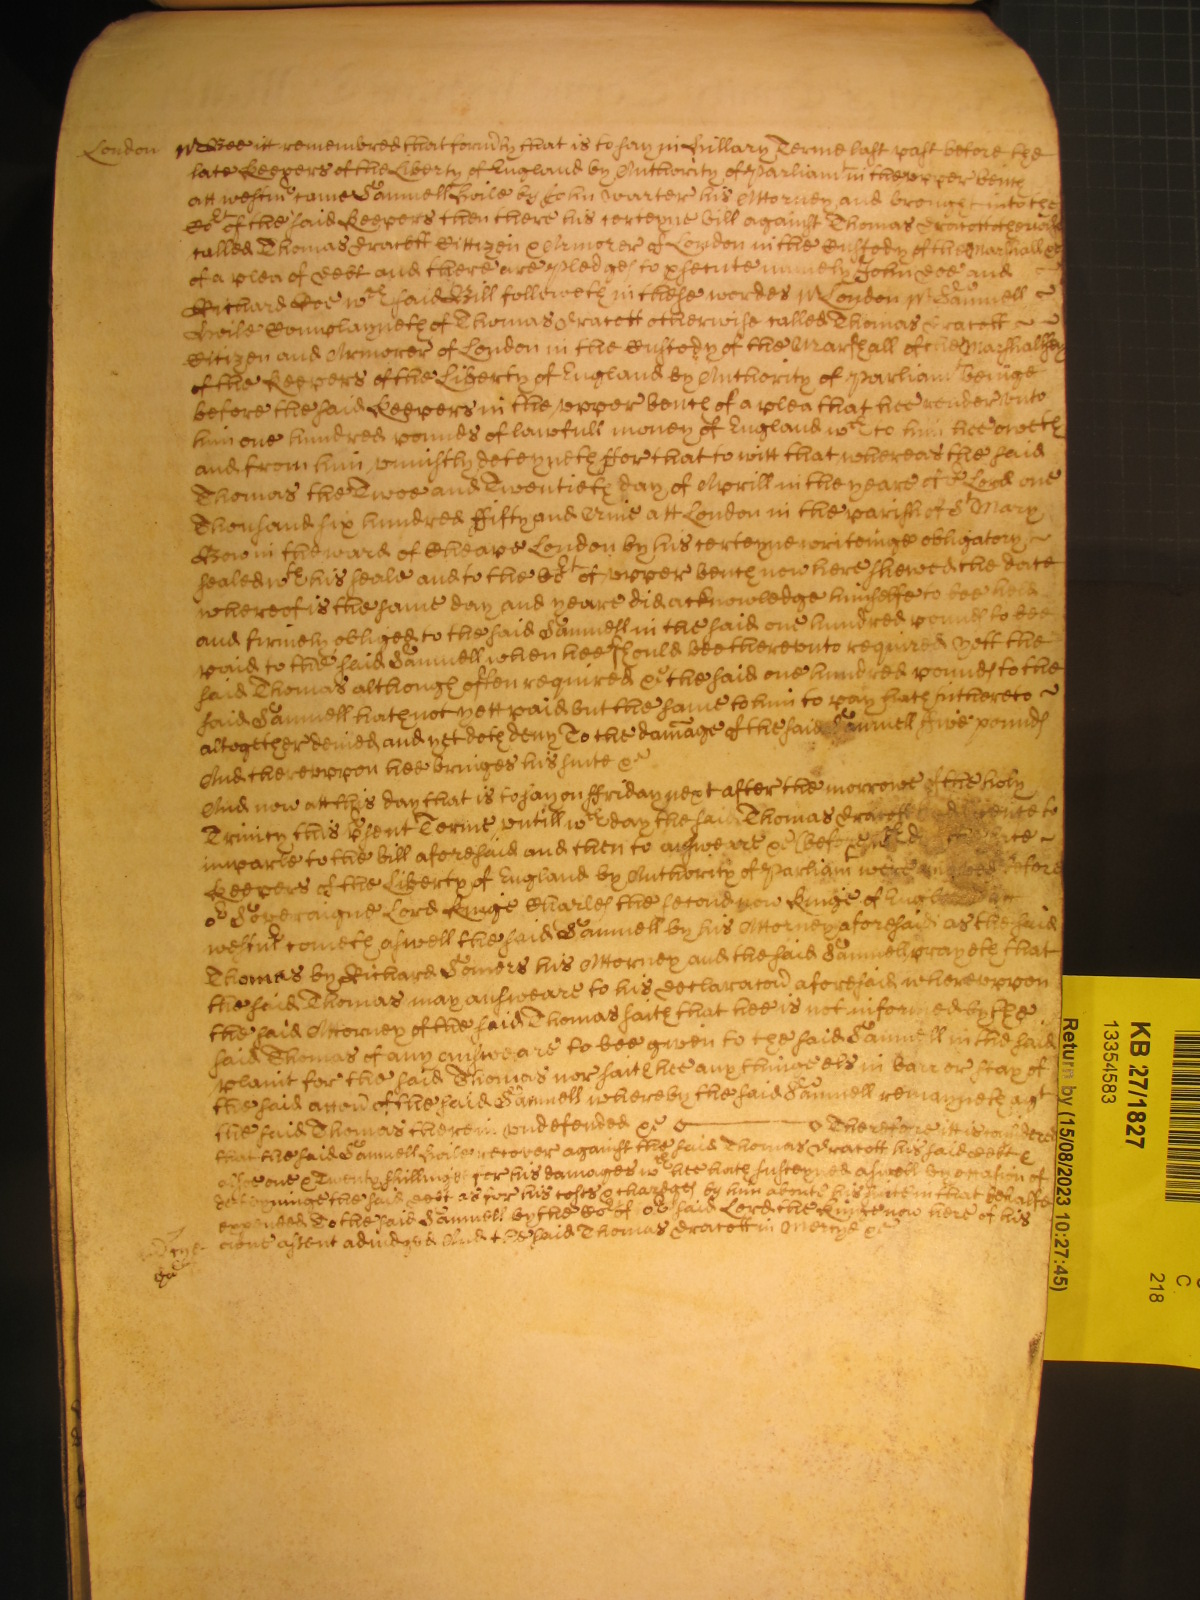 London
Bee itt remembred that form'ly that is to say in Hillary Terme last past before the
late Keepers of the Liberty of England by Authority of Parliamt in the upper bench
att westm' came Samuell Boile by John Warter his Attorney and brought into the
Cort of the said Keepers then there his certeyne bill against Thomas Dracott otherwise
called Thomas Dracott Cittizen & Armorer of London in the Custody of the Marshall &c
of a plea of debt and there are pledges to psecute namely John Doe and
Richard Roe wch said Bill followeth in these wordes London Samuell
Boile Complayneth of Thomas Dracott otherwise called Thomas Dracott
Citizen and Armorer of London in the Custody of the Marshall of the Marshalsey
of the Keepers of the Liberty of England by Authority of Parliamt beinge
before the said Keepers in the upper bench of a plea that hee render unto
him one hundred pounds of lawfull money of England wch to him hee oweth
and from him uniustly deteyneth ffor that to witt that whereas the said
Thomas the Twoe and Twentieth day of Aprill in the yeare of or Lord one
Thousand six hundred ffifty and Nine att London in the parish of St Mary
Bow in the ward of Cheape London by his certeyne writeinge obligatory
sealed wth his seale and to the Cort of upper bench now here shewed the date
whereof is the same day and yeare did acknowledge himselfe to bee held
and firmely obliged to the said Samuell in the said one hundred pounds to bee
paid to the said Samuell when hee should bee thereunto required yett the
said Thomas although often required &c the said one hundred pounds to the
said Samuell hath not yett paid but the same to him to pay hath hitherto
altogether denied and yet doth deny To the damage of the said Samuell ffive pounds
And thereuppon hee bringes his suite &c
And now att this day that is to say on ffriday next after the morrowe of the holy
Trinity this psent Terme untill wch day the said Thomas Dracott had licence to
imparle to the bill aforesaid and then to answeare &c before wch day the late
Keepers of the Liberty of England by Authority of Parliamt were before
or Soveraigne Lord Kinge Charles the second now Kinge of England att
westm' cometh aswell the said Samuell by his Attorney aforesaid as the said
Thomas by Richard Somers his Attorney and the said Samuell prayeth that
the said Thomas may answeare to his declaraton aforesaid whereuppon
the said Attorney of the said Thomas saith that hee is not informed by the
said Thomas of any answeare to bee given to the said Samuell in the said
plaint for the said Thomas nor saith hee any thinge els in barr or stay of
the said acton of the said Samuell whereby the said Samuell remayneth agt
the said Thomas therein undefended &c Therefore itt is considered
that the said Samuell Boile recover against the said Thomas Dracott his said debt &
alsoe one & Twenty shillings for his damages wch hee hath susteyned aswell by occasion of
deteyninge the said debt as for his costs & chardges by him aboute his suite in that behalfe
expended To the said Samuell by the Cort of or said Lord the Kinge now here of his
owne assent adiudged And the said Thomas Dracott in Mercye &c
KB 27/1827
13354583
Return by (15/08/2023 10:27:45)
C
218